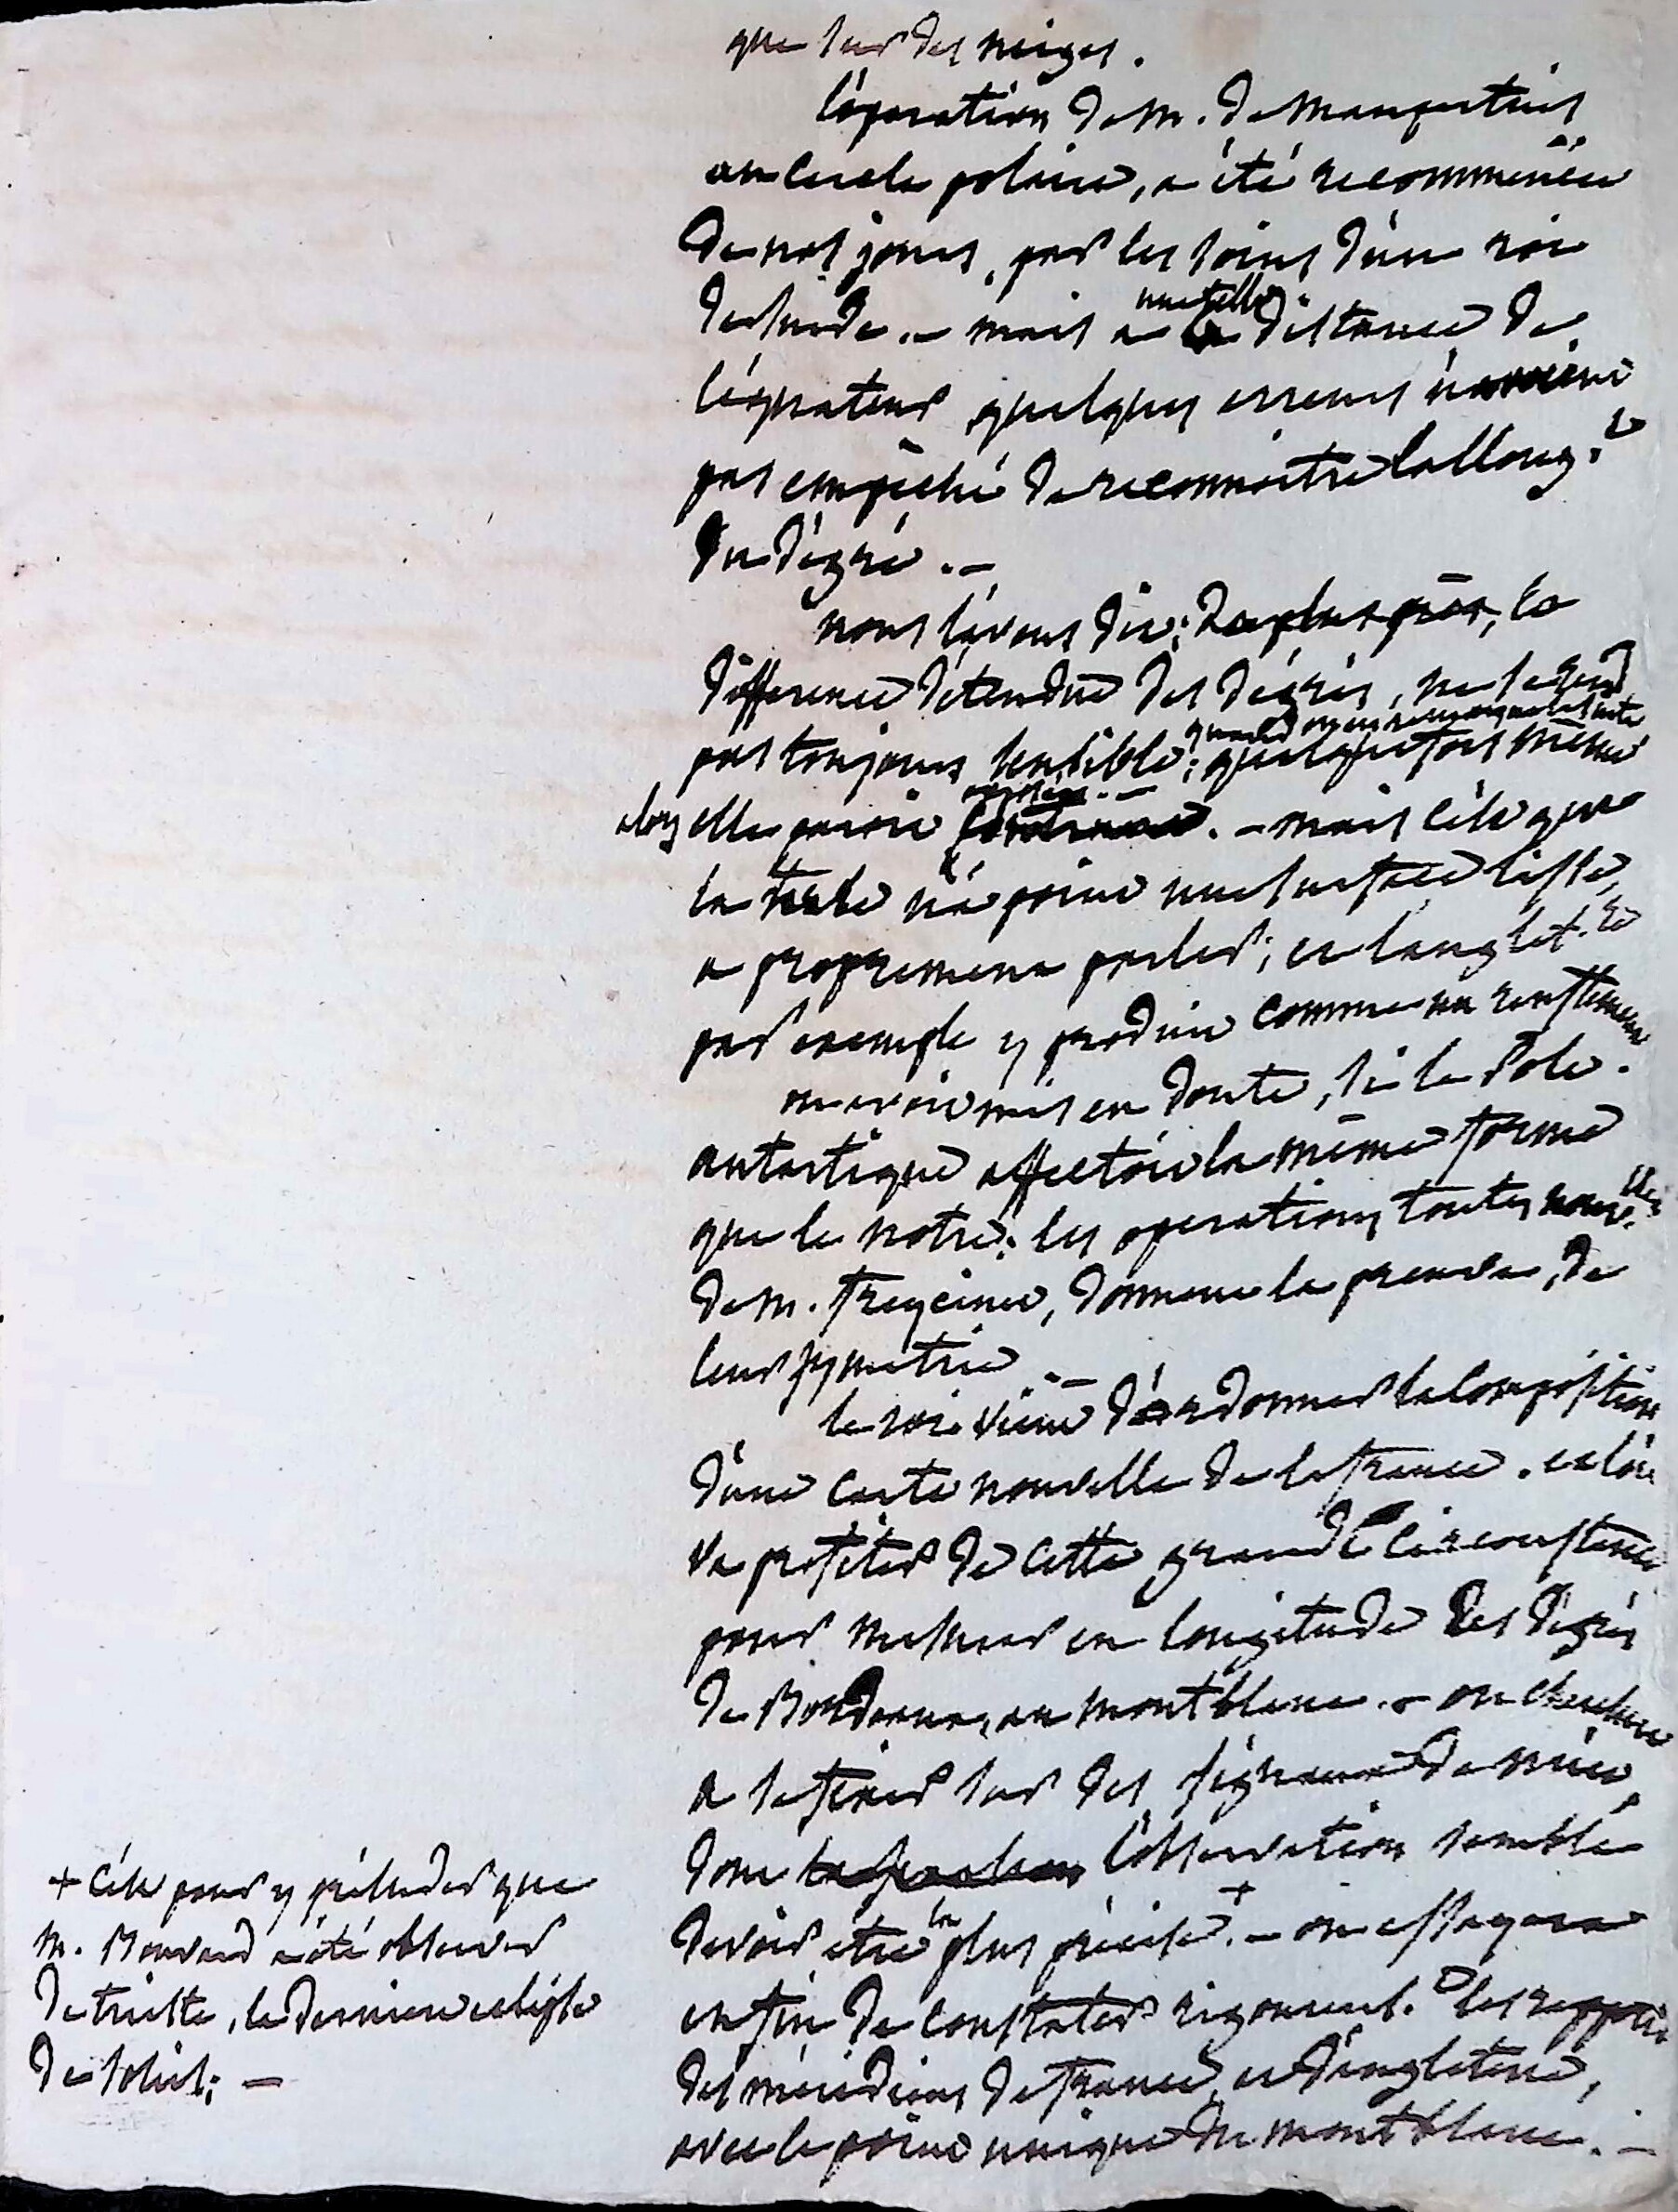 que sur des neiges.
l'opération de m. de maupertuis
au cercle polaire, a été recommencée
de nos jours, par les soins d'un roi
de suède. – mais a une telle distance de
l'équateur quelques erreurs n'avoient
pas empêché de reconnoitre l'allong.t
du dégré. –
nous l'avons dit; de plus près, la
différence d'étendue des dégrés, ne se rend
pas toujours sensible; quelquefois même
quand on en mesure
alors elle paroit . – mais c'est que
la terre n'a point une surface lisse,
a proprement parler; et l'anglet.re
par exemple y produit comme un renflement
on avoit mis en doute, si le Pole.
antartique affectoit la même forme
que le notre; les operations toutes nouv.lles
de m. freycinet, donnent la preuve, de
leur symetrie. –
le roi vient d'ordonner la composition
d'une carte nouvelle de la france. et l'on
va profiter de cette grande circonstance
pour mesurer en longitude les dégrés
de Bordeaux, au montblanc. – on cherchera
a se fixer sur des signaux de nuit,
dont l'observation semble
devoir être la plus précise. + – on essayera
enfin de constater rigoureus.t les rapports
des méridiens de france, et d'angleterre,
avec le point unique du montblanc. –
+ c'est pour y préluder que
m. Bouvard a été observer
de trieste, la derniere eclipse
de soleil; –